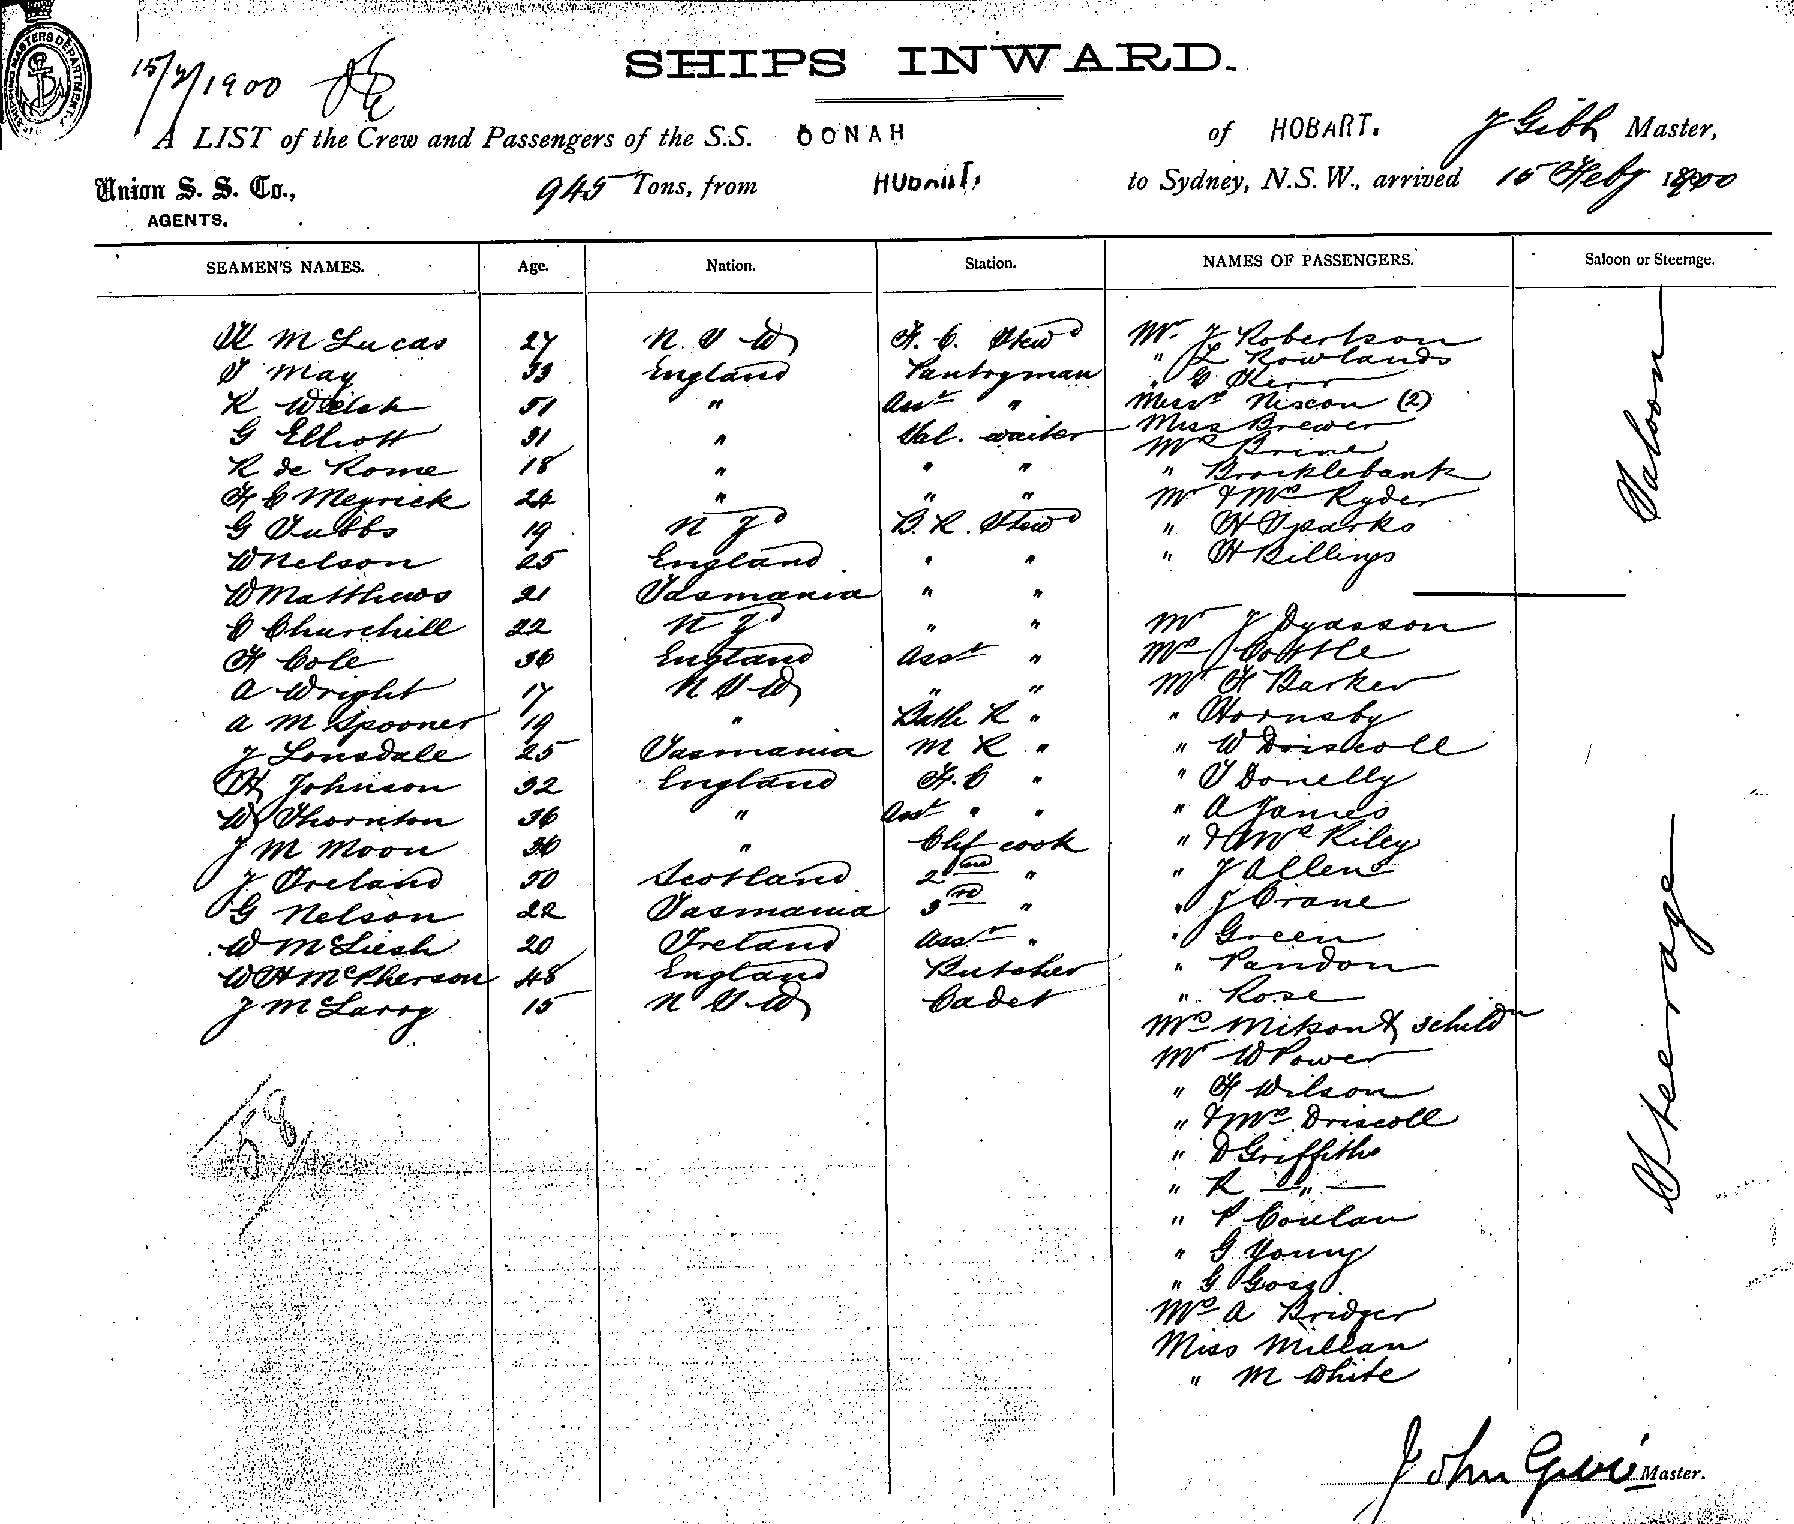 15/2/1900
SHIPS INWARD.
A LIST of the Crew and Passengers of the S.S. OONAH of HOBART. J Gibb Master,
Union S. S. Co., 945 Tons, from HOBART. to Sydney, N.S.W., arrived 15 Feby 1900
AGENTS.
SEAMEN'S NAMES. Age. Nation. Station. NAMES OF PASSENGERS. Saloon or Steerage.
M Lucas 27 N. S W F. C. Stewd
S May 33 England Pantryman
R Welsh 51 " Asst "
G Elliott 31 " Sal. waiter
R de Rome 18 " " "
F C Meyrick 24 " " "
G Tubbs 19 N Zd B. R. Stewd
W Nelson 25 England " "
W Matthews 21 Tasmania " "
C Churchill 22 N Zd " "
F Cole 36 England Asst "
A Wright 17 N S W " "
A M Spooner 19 " Bath R "
J Lonsdale 25 Tasmania M R "
H Johnson 32 England F. C "
W Thornton 36 " Asst " "
J M Moon 36 " Chf cook
J Ireland 50 Scotland 2nd "
G Nelson 22 Tasmania 3rd "
W McLiesh 20 Ireland Asst "
W H McPherson 48 England Butcher
J M Larry 15 N S W Cadet
Mr J Robertson
" L Rowlands
" G Kerr
Misses Nixon (2)
Miss Brewer
Mrs Brine
" Brocklebank
Mr & Mrs Ryder
" H Sparks
" H Billings
Saloon
Mr J Dyasson
Mrs J Cottle
Mr F Barker
" Hornsby
" W Driscoll
" T Donelly
" A James
" & Mrs Riley
" J Allen
" J Crane
" Green
" Pandon
" Rose
Mrs Mitson & 3 childn
Mr W Power
" F Wilson
" & Mrs Driscoll
" D Griffiths
" R — " —
" P Conlan
" G Young
" G Goss
Mrs A Bridger
Miss Millan
" M White
Steerage
58
John Gibb Master.